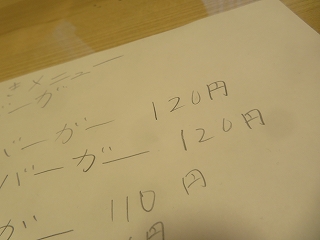 きメニュー
バーガー
バーガー 120円
バーガー 120円
ガー 110円
円